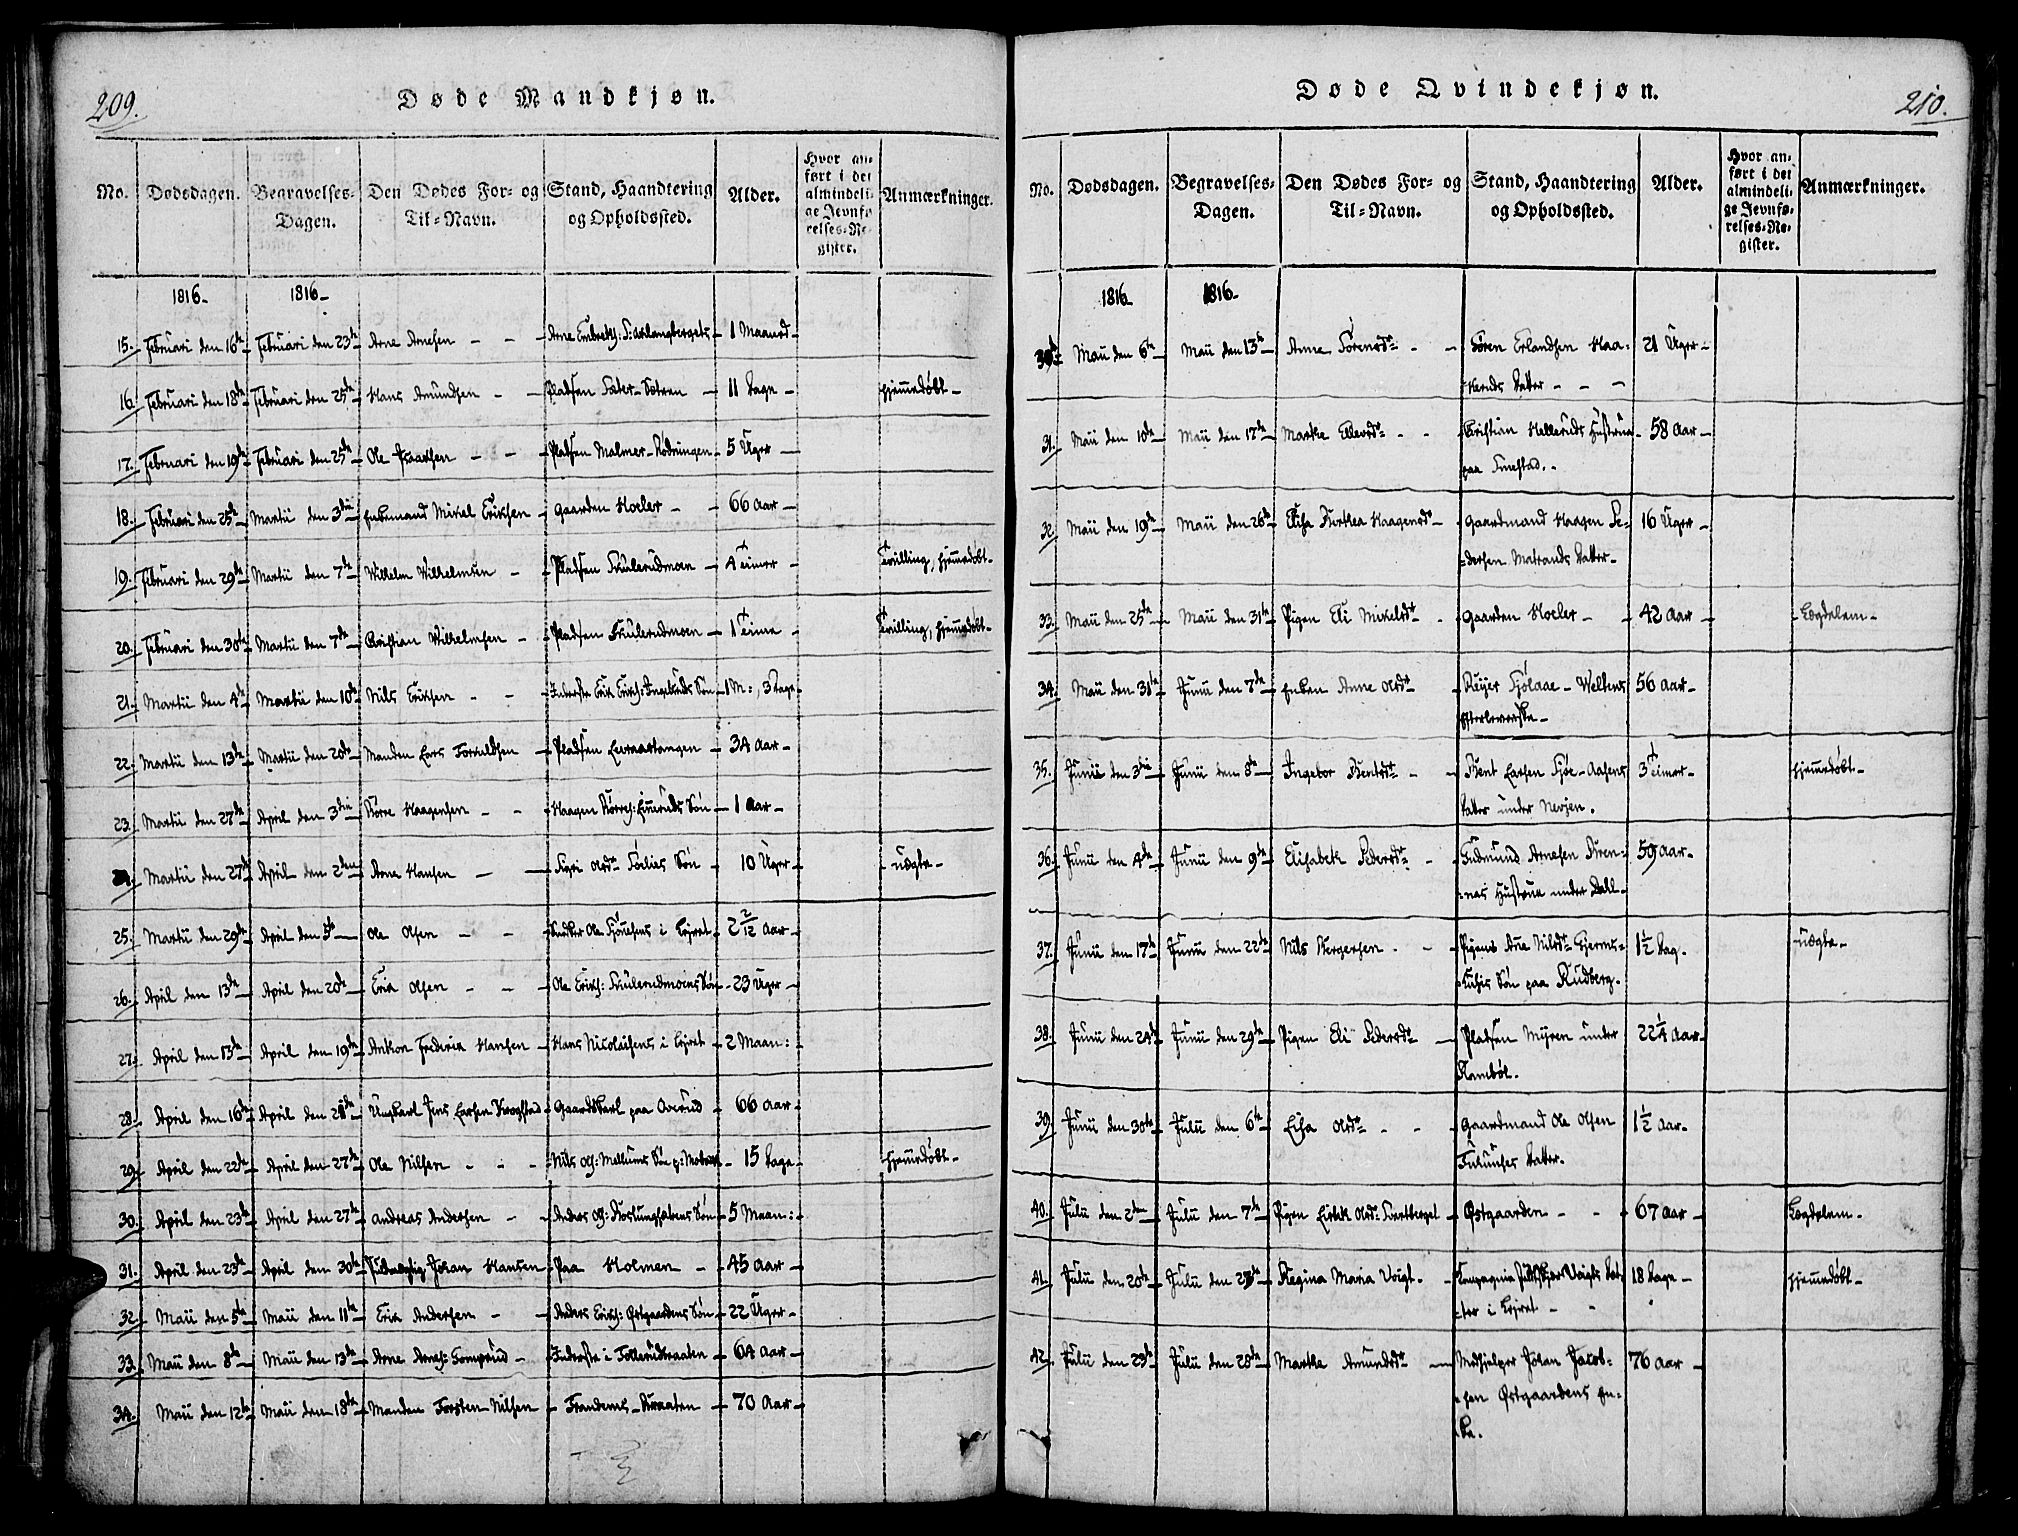 209.
Døde Mandkjøn.
No. Dødsdagen. Begravelses-Dagen. Den Dødes For- og Til-Navn. Stand, Haandtering og Opholdssted. Alder. Hvor anført i det almindelige Jevnførelses-Register. Anmærkninger.
1816 1816
15. Februari den 16de Februari den 23de Arne Arnesen 1 Maaned
16. Februari den 18de Februari den 25de Hans Amundsen Pladsen Sæter-Sætren 11 Dage hjemmedøbt
17. Februari den 19de Februari den 25de Ole Pladsen Malmer-Rødningen 5 Uger
18. Februari den 25de Martii den 3die Enkemand Mikel Eriksen Gaarden Hoeler 66 Aar
19. Februari den 29de Martii den 7de Wilhelm Wilhelmsen Pladsen Skulerudmoen 4 Teimer Tvilling, hjemmedøbt
20. Februari den 30de Martii den 7de Christian Wilhelmsen Pladsen Skulerudmoen 1 Teime Tvilling, hjemmedøbt
21. Martii den 4de Martii den 10de Nils Eriksen Inderste Erik Eriks: Søn 1 M:, 3 Dage
22. Martii den 13de Martii den 20de Manden Lars Torkildsen Pladsen 34 Aar
23. Martii den 27de April den 3die Børre Haagensen Haagen Børres: Søn 1 Aar
24. Martii den 27de April den 2den Arne Hansen Sigri Olsdr Sørlies Søn 10 Uger uægte
25. Martii den 29de April den 5te Ole Olsen Ole i Lejret 2 2/12 Aar
26. April den 13de April den 20de Erik Olsen Ole Eriks: Skulerudmoens Søn 23 Uger
27. April den 13de April den 19de Anthon Frederik Hansen Hans Nicolaisens i Lejret 2 Maan:
28. April den 16de April den 28de Ungkarl Jens Larsen Krogstad Gaardskarl paa Overud 66 Aar
29. April den 22de April den 27de Ole Nilsen Nils Ols: Mellums Søn 15 Dage hjemmedøbt
30. April den 23de April den 27de Andreas Andersen Anders Ols: Søn 5 Maan:
31. April den 23de April den 30te Johan Hansen Paa Holmen 45 Aar
32. Maii den 5te Maii den 11te Erik Andersen Anders Eriks: Østgaardens Søn 22 Uger
33. Maii den 8de Maii den 13de Arne Arnes: Somprud Inderste i 64 Aar
34. Maii den 12te Maii den 18de Manden Torsten Nilsen Braaten 70 Aar
210.
Døde Qvindekjøn.
No. Dødsdagen. Begravelses-Dagen. Den Dødes For- og Til-Navn. Stand, Haandtering og Opholdssted. Alder. Hvor anført i det almindelige Jevnførelses-Register. Anmærkninger.
1816 1816
30te Maii den 6te Maii den 13de Anne Sørensdr Søren Erlandsen Haa-
kerids Datter 21 Uger
31. Maii den 10de Maii den 17de Marthe Ellevsdr Christian Hellerids Hustrue
paa Smestad. 58 Aar
32. Maii den 19de Maii den 26de Elisa Dorthea Haagensdr Gaardmand Haagen Pe-
dersen Matrands Datter 16 Uger
33. Maii den 25de Maii den 31te Pigen Eli Mikelsdr Gaarden Hoeler 42 Aar Lægdslem
34. Maii den 31te Junii den 7de Enken Anne Olsdr
Efterleverske 56 Aar
35. Junii den 3die Junii den 8de Ingebor Bentsdr Bent Larsen
Datter under Nevjen. 3 Teimer hjemmedøbt
36. Junii den 4de Junii den 9de Elisabeth Pedersdr Gudmund Arnesen Bren-
nas Hustrue under Dahl 59 Aar
37. Junii den 17de Junii den 22de Nils Børgersen Pigens Ane Nilsdr
Søn paa Rudberg. 1½ Dag uægte
38. Junii den 24de Junii den 29de Pigen Eli Pedersdr Pladsen Myren under
Rambøl. 22¼ Aar
39. Junii den 30te Julii den 6te Lisa Olsdr Gaardmand Ole Olsen
Datter. 1½ Aar
40. Julii den 2den Julii den 7de Pigen Lisbeth Olsdr Svartberget Østgaarden 67 Aar Lægdslem
41. Julii den 20de Julii den 28de Regina Maria Voigt Voigts Dat-
ter i Lejret 18 Dage hjemmedøbt
42. Julii den 23de Julii den 28de Marthe Amundsdr Medhjelper Johan Jacob-
sen Østgaardens En-
ke. 76 Aar